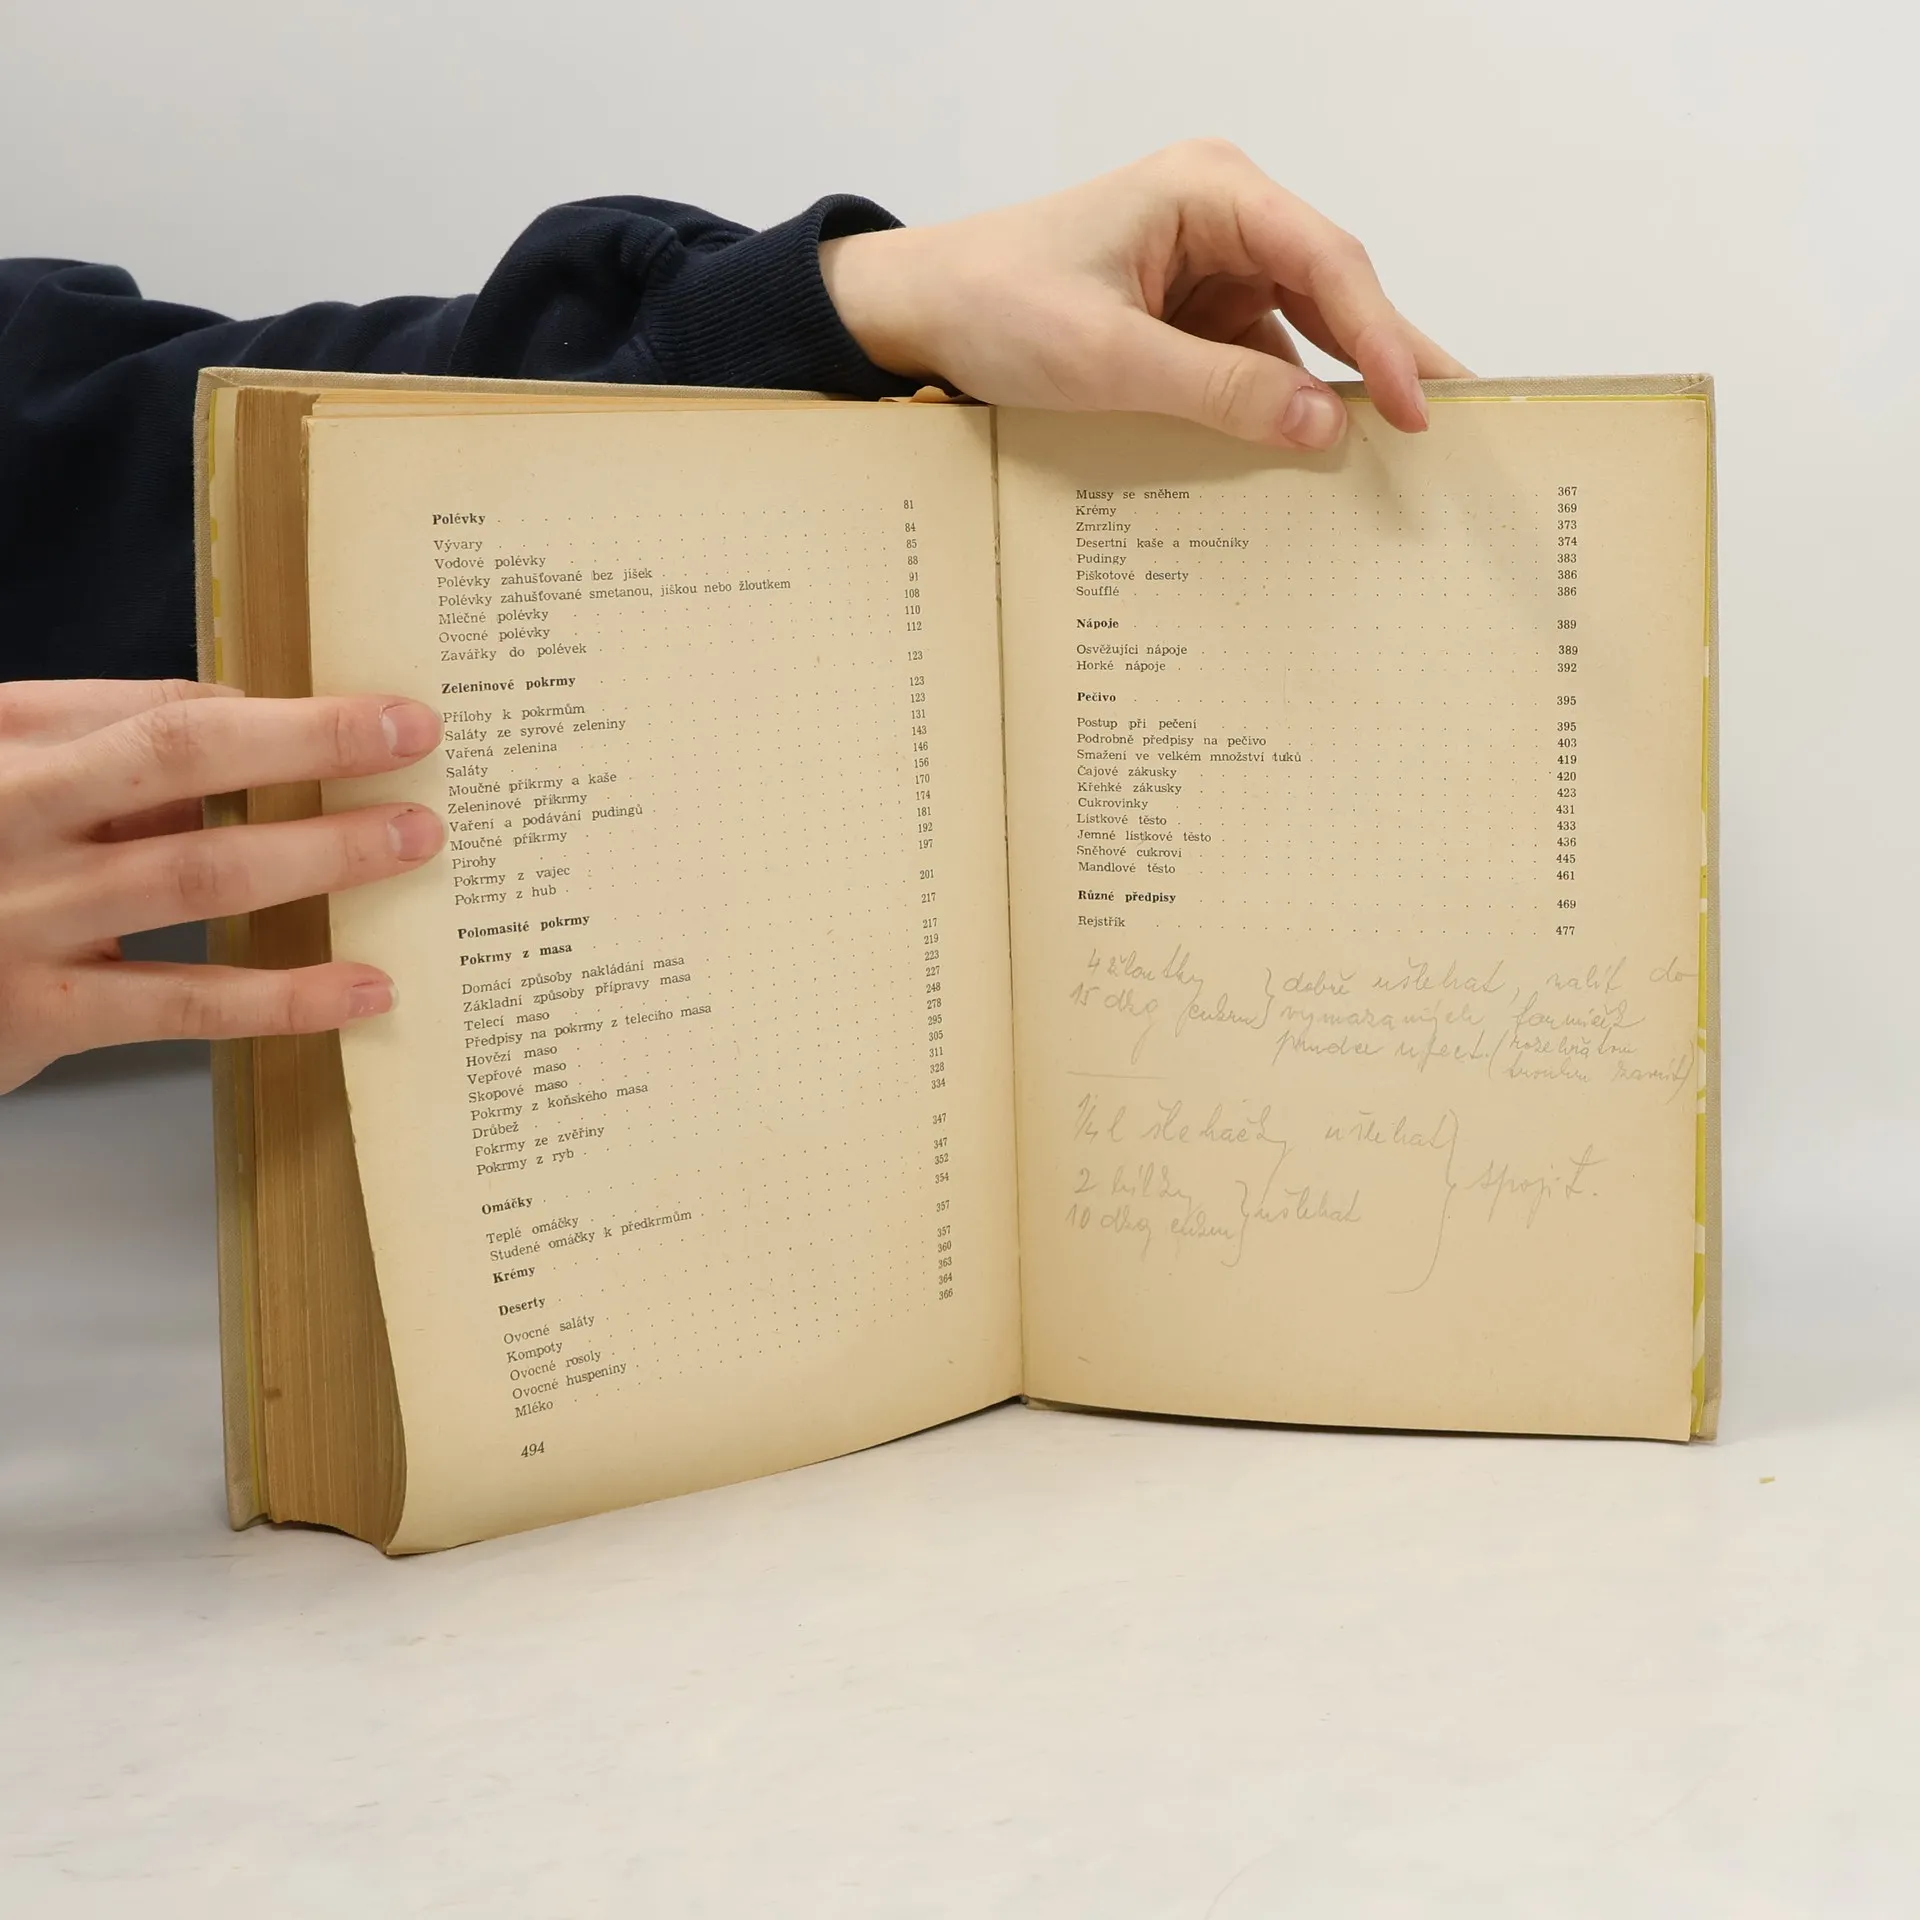 Polévky 81
Vývary 84
Vodové polévky 85
Polévky zahušťované bez jíšek 88
Polévky zahušťované smetanou, jíškou nebo žloutkem 91
Mléčné polévky 108
Ovocné polévky 110
Zavářky do polévek 112
Zeleninové pokrmy 123
Přílohy k pokrmům 123
Saláty ze syrové zeleniny 123
Vařená zelenina 131
Saláty 143
Moučné příkrmy a kaše 146
Zeleninové příkrmy 156
Vaření a podávání pudingů 170
Moučné příkrmy 174
Pirohy 181
Pokrmy z vajec 192
Pokrmy z hub 197
Polomasité pokrmy 201
Pokrmy z masa 217
Domácí způsoby nakládání masa 217
Základní způsoby přípravy masa 219
Telecí maso 223
Předpisy na pokrmy z telecího masa 227
Hovězí maso 248
Vepřové maso 278
Skopové maso 295
Pokrmy z koňského masa 305
Drůbež 311
Pokrmy ze zvěřiny 328
Pokrmy z ryb 334
Omáčky 347
Teplé omáčky 347
Studené omáčky k předkrmům 352
Krémy 354
Deserty 357
Ovocné saláty 357
Kompoty 360
Ovocné rosoly 363
Ovocné huspeniny 364
Mléko 366
494
Mussy se sněhem 367
Krémy 369
Zmrzliny 373
Desertní kaše a moučníky 374
Pudingy 383
Piškotové deserty 386
Soufflé 386
Nápoje 389
Osvěžující nápoje 389
Horké nápoje 392
Pečivo 395
Postup při pečení 395
Podrobné předpisy na pečivo 403
Smažení ve velkém množství tuků 419
Čajové zákusky 420
Křehké zákusky 423
Cukrovinky 431
Lístkové těsto 433
Jemné lístkové těsto 436
Sněhové cukroví 445
Mandlové těsto 461
Různé předpisy 469
Rejstřík 477
4 žloutky } dobře ušlehat, nalít do
15 dkg cukru } vymazaných formiček
prudce upéct. (rozehřátou
troubu zavřít)
1/4 l šlehačky ušlehat
2 bílky } ušlehat } spojit.
10 dkg cukru